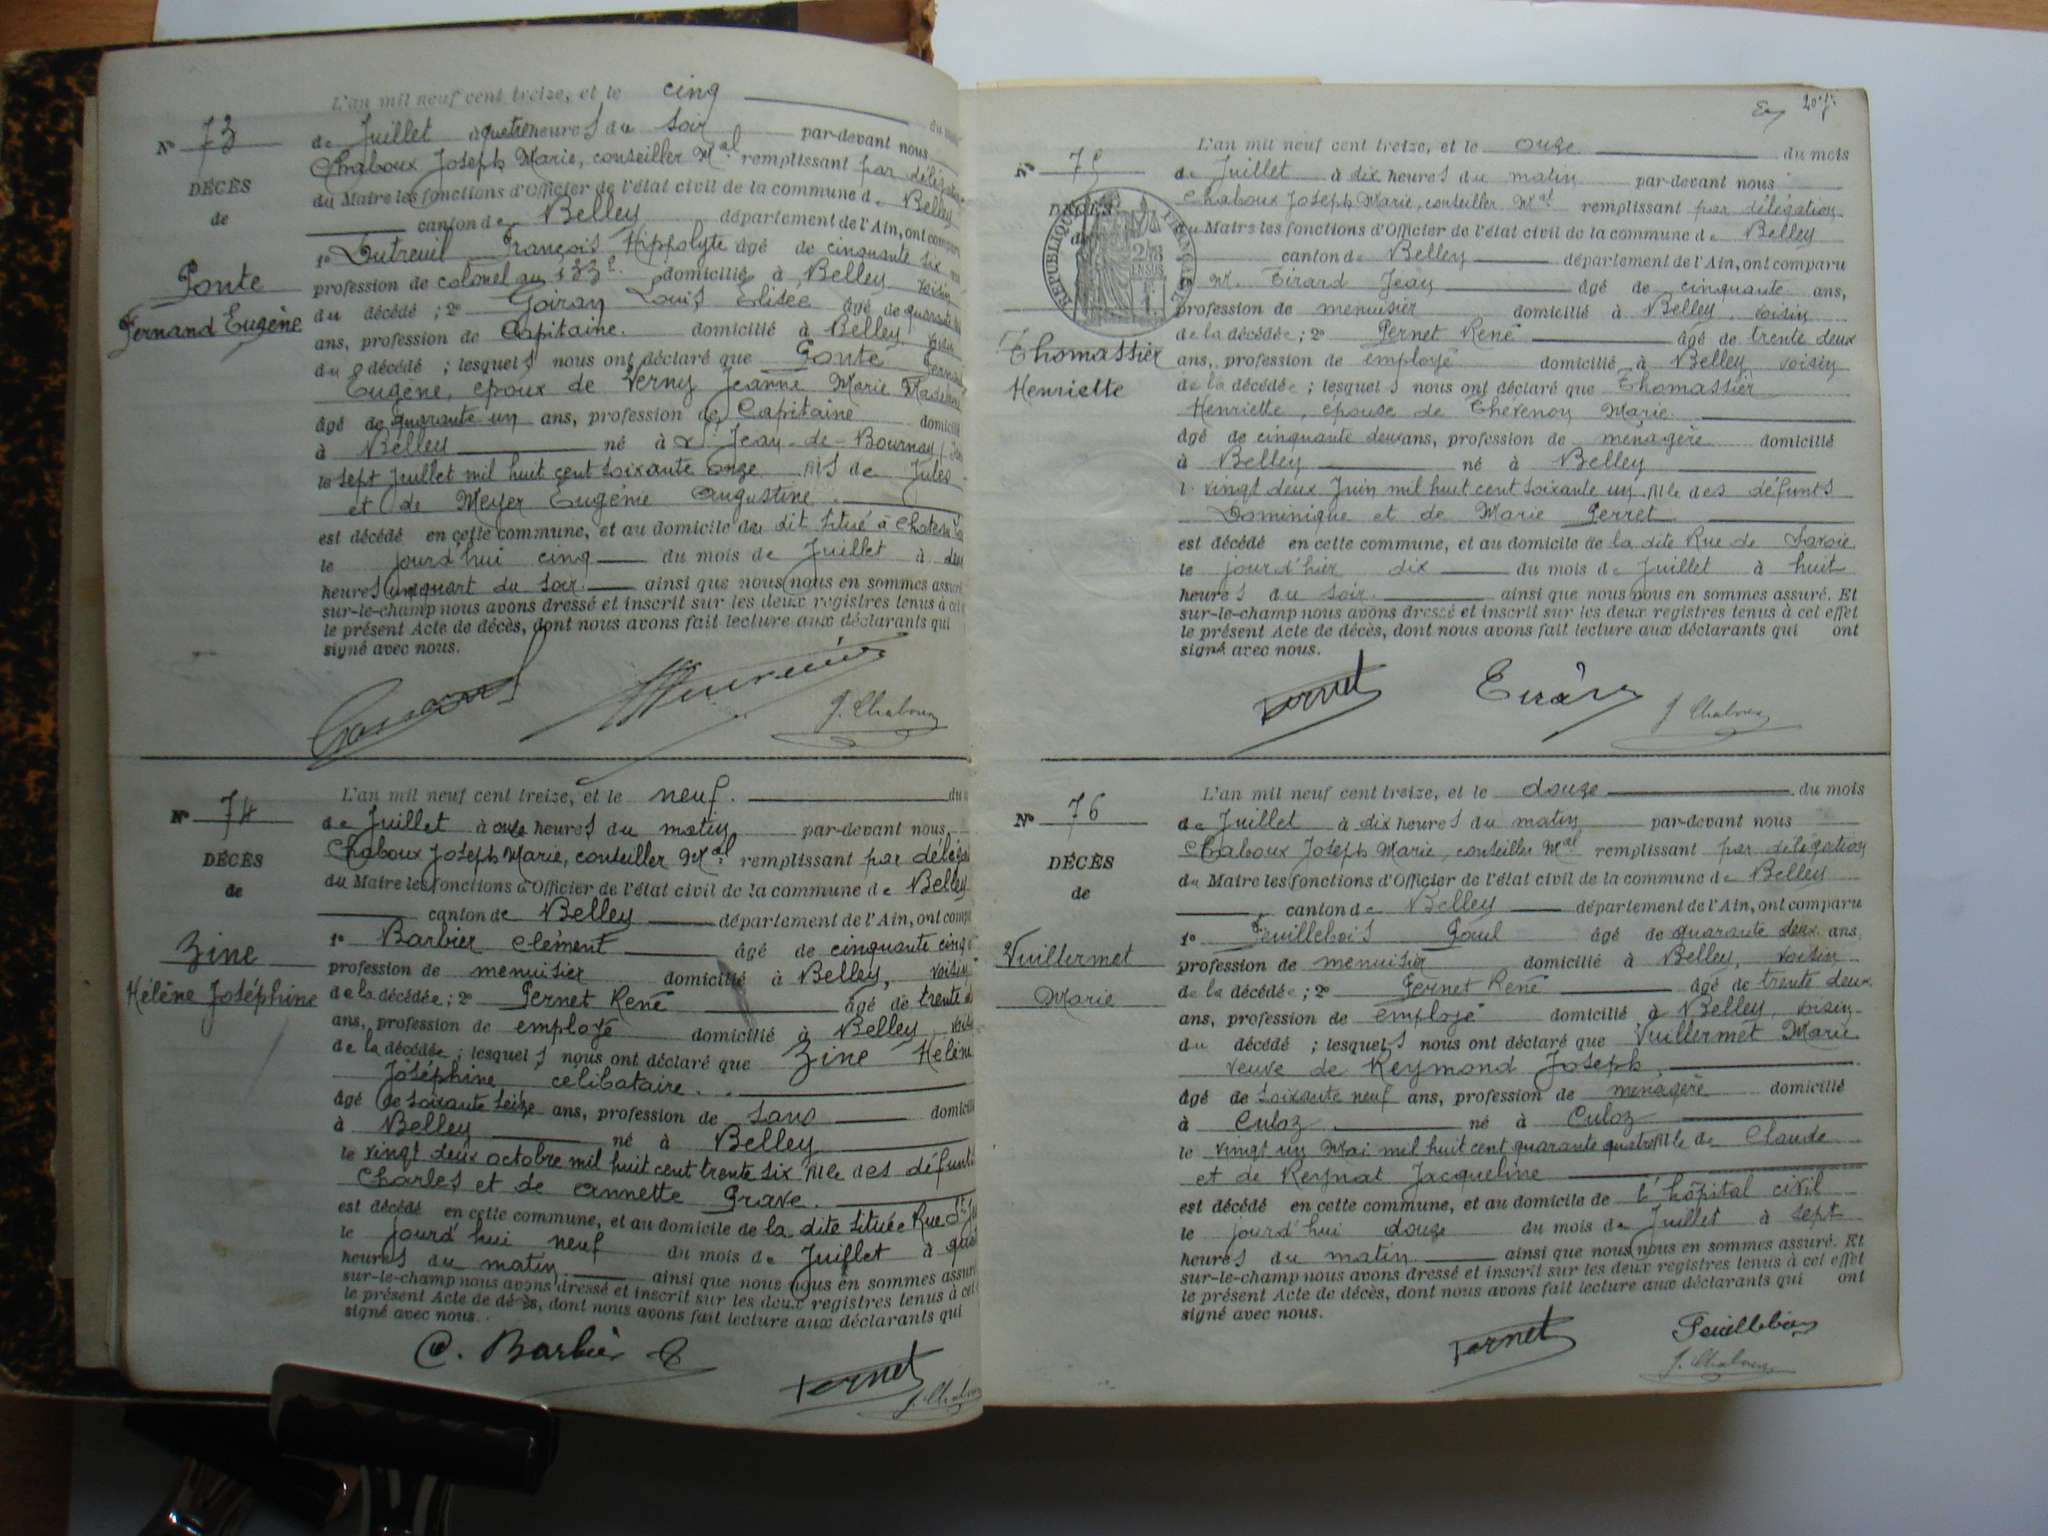 N° 73
DÉCÈS
de
Ponte
Fernand Eugène
L'an mil neuf cent treize, et le cinq du mois
de Juillet à quatre heures du soir par-devant nous
Chaboux Joseph Marie, conseiller Mal remplissant par délégation
du Maire les fonctions d'Officier de l'état civil de la commune de Belley
canton de Belley département de l'Ain, ont comparu
1° Dutreuil François Hippolyte âgé de cinquante six ans
profession de colonel au 133e domicilié à Belley voisin
du décédé ; 2° Goiran Louis Elisée âgé de quarante
ans, profession de Capitaine. domicilié à Belley voisin
du décédé ; lesquels nous ont déclaré que Ponte Fernand
Eugène, époux de Verny Jeanne Marie Madeleine
âgé de quarante un ans, profession de Capitaine domicilié
à Belley né à St Jean-de-Bournay
le sept Juillet mil huit cent soixante onze fils de Jules
et de Meyer Eugénie Augustine.
est décédé en cette commune, et au domicile du dit situé à
le jourd'hui cinq du mois de Juillet à deux
heures un quart du soir. ainsi que nous nous en sommes assuré
sur-le-champ nous avons dressé et inscrit sur les deux registres tenus à cet
le présent Acte de décès, dont nous avons fait lecture aux déclarants qui
signé avec nous.
J. Chaboux
N° 74
DÉCÈS
de
Zine
Hélène Joséphine
L'an mil neuf cent treize, et le neuf. du
de Juillet à onze heures du matin par-devant nous
Chaboux Joseph Marie, conseiller Mal remplissant par délégation
du Maire les fonctions d'Officier de l'état civil de la commune de Belley
canton de Belley département de l'Ain, ont comparu
1° Barbier Clément âgé de cinquante cinq
profession de menuisier domicilié à Belley, voisin
de la décédée ; 2° Pernet René âgé de trente
ans, profession de employé domicilié à Belley, voisin
de la décédée ; lesquels nous ont déclaré que Zine Hélène
Joséphine, célibataire.
âgé de soixante seize ans, profession de sans domicilié
à Belley né à Belley
le vingt deux octobre mil huit cent trente six fille des défunts
Charles et de Annette Grave.
est décédé en cette commune, et au domicile de la dite située Rue St
le jourd'hui neuf du mois de Juillet à
heures du matin. ainsi que nous nous en sommes assuré
sur-le-champ nous avons dressé et inscrit sur les deux registres tenus à cet
le présent Acte de décès, dont nous avons fait lecture aux déclarants qui
signé avec nous.
C. Barbier
Pernet
J. Chaboux
N° 75
DÉCÈS
de
RÉPUBLIQUE FRANÇAISE
Thomassier
Henriette
L'an mil neuf cent treize, et le onze du mois
de Juillet à dix heures du matin par-devant nous
Chaboux Joseph Marie, conseiller Mal remplissant par délégation
du Maire les fonctions d'Officier de l'état civil de la commune de Belley
canton de Belley département de l'Ain, ont comparu
M. Tirard Jean âgé de cinquante ans,
profession de menuisier domicilié à Belley, voisin
de la décédée ; 2° Pernet René âgé de trente deux
ans, profession de employé domicilié à Belley voisin
de la décédée ; lesquels nous ont déclaré que Thomassier
Henriette, épouse de Thevenon Marie.
âgé de cinquante deux ans, profession de ménagère domicilié
à Belley né à Belley
l vingt deux Juin mil huit cent soixante un fille des défunts
Dominique et de Marie Perret
est décédé en cette commune, et au domicile de la dite Rue de Savoie
le jourd'hier dix du mois de Juillet à huit
heures du soir. ainsi que nous nous en sommes assuré. Et
sur-le-champ nous avons dressé et inscrit sur les deux registres tenus à cet effet
le présent Acte de décès, dont nous avons fait lecture aux déclarants qui ont
signé avec nous.
Pernet
J. Chaboux
N° 76
DÉCÈS
de
Vuillermet
Marie
L'an mil neuf cent treize, et le douze du mois
de Juillet à dix heures du matin par-devant nous
Chaboux Joseph Marie, conseiller Mal remplissant par délégation
du Maire les fonctions d'Officier de l'état civil de la commune de Belley
canton de Belley département de l'Ain, ont comparu
1° Feuillebois Paul âgé de quarante deux ans
profession de menuisier domicilié à Belley, voisin
de la décédée ; 2° Pernet René âgé de trente deux
ans, profession de employé domicilié à Belley, voisin
du décédé ; lesquels nous ont déclaré que Vuillermet Marie
veuve de Reymond Joseph.
âgé de soixante neuf ans, profession de ménagère domicilié
à Culoz né à Culoz
le vingt un Mai mil huit cent quarante quatre fille de Claude
et de Reynat Jacqueline
est décédé en cette commune, et au domicile de l'hôpital civil
le jourd'hui douze du mois de Juillet à sept
heures du matin. ainsi que nous nous en sommes assuré. Et
sur-le-champ nous avons dressé et inscrit sur les deux registres tenus à cet effet
le présent Acte de décès, dont nous avons fait lecture aux déclarants qui ont
signé avec nous.
Pernet
Feuillebois
J. Chaboux